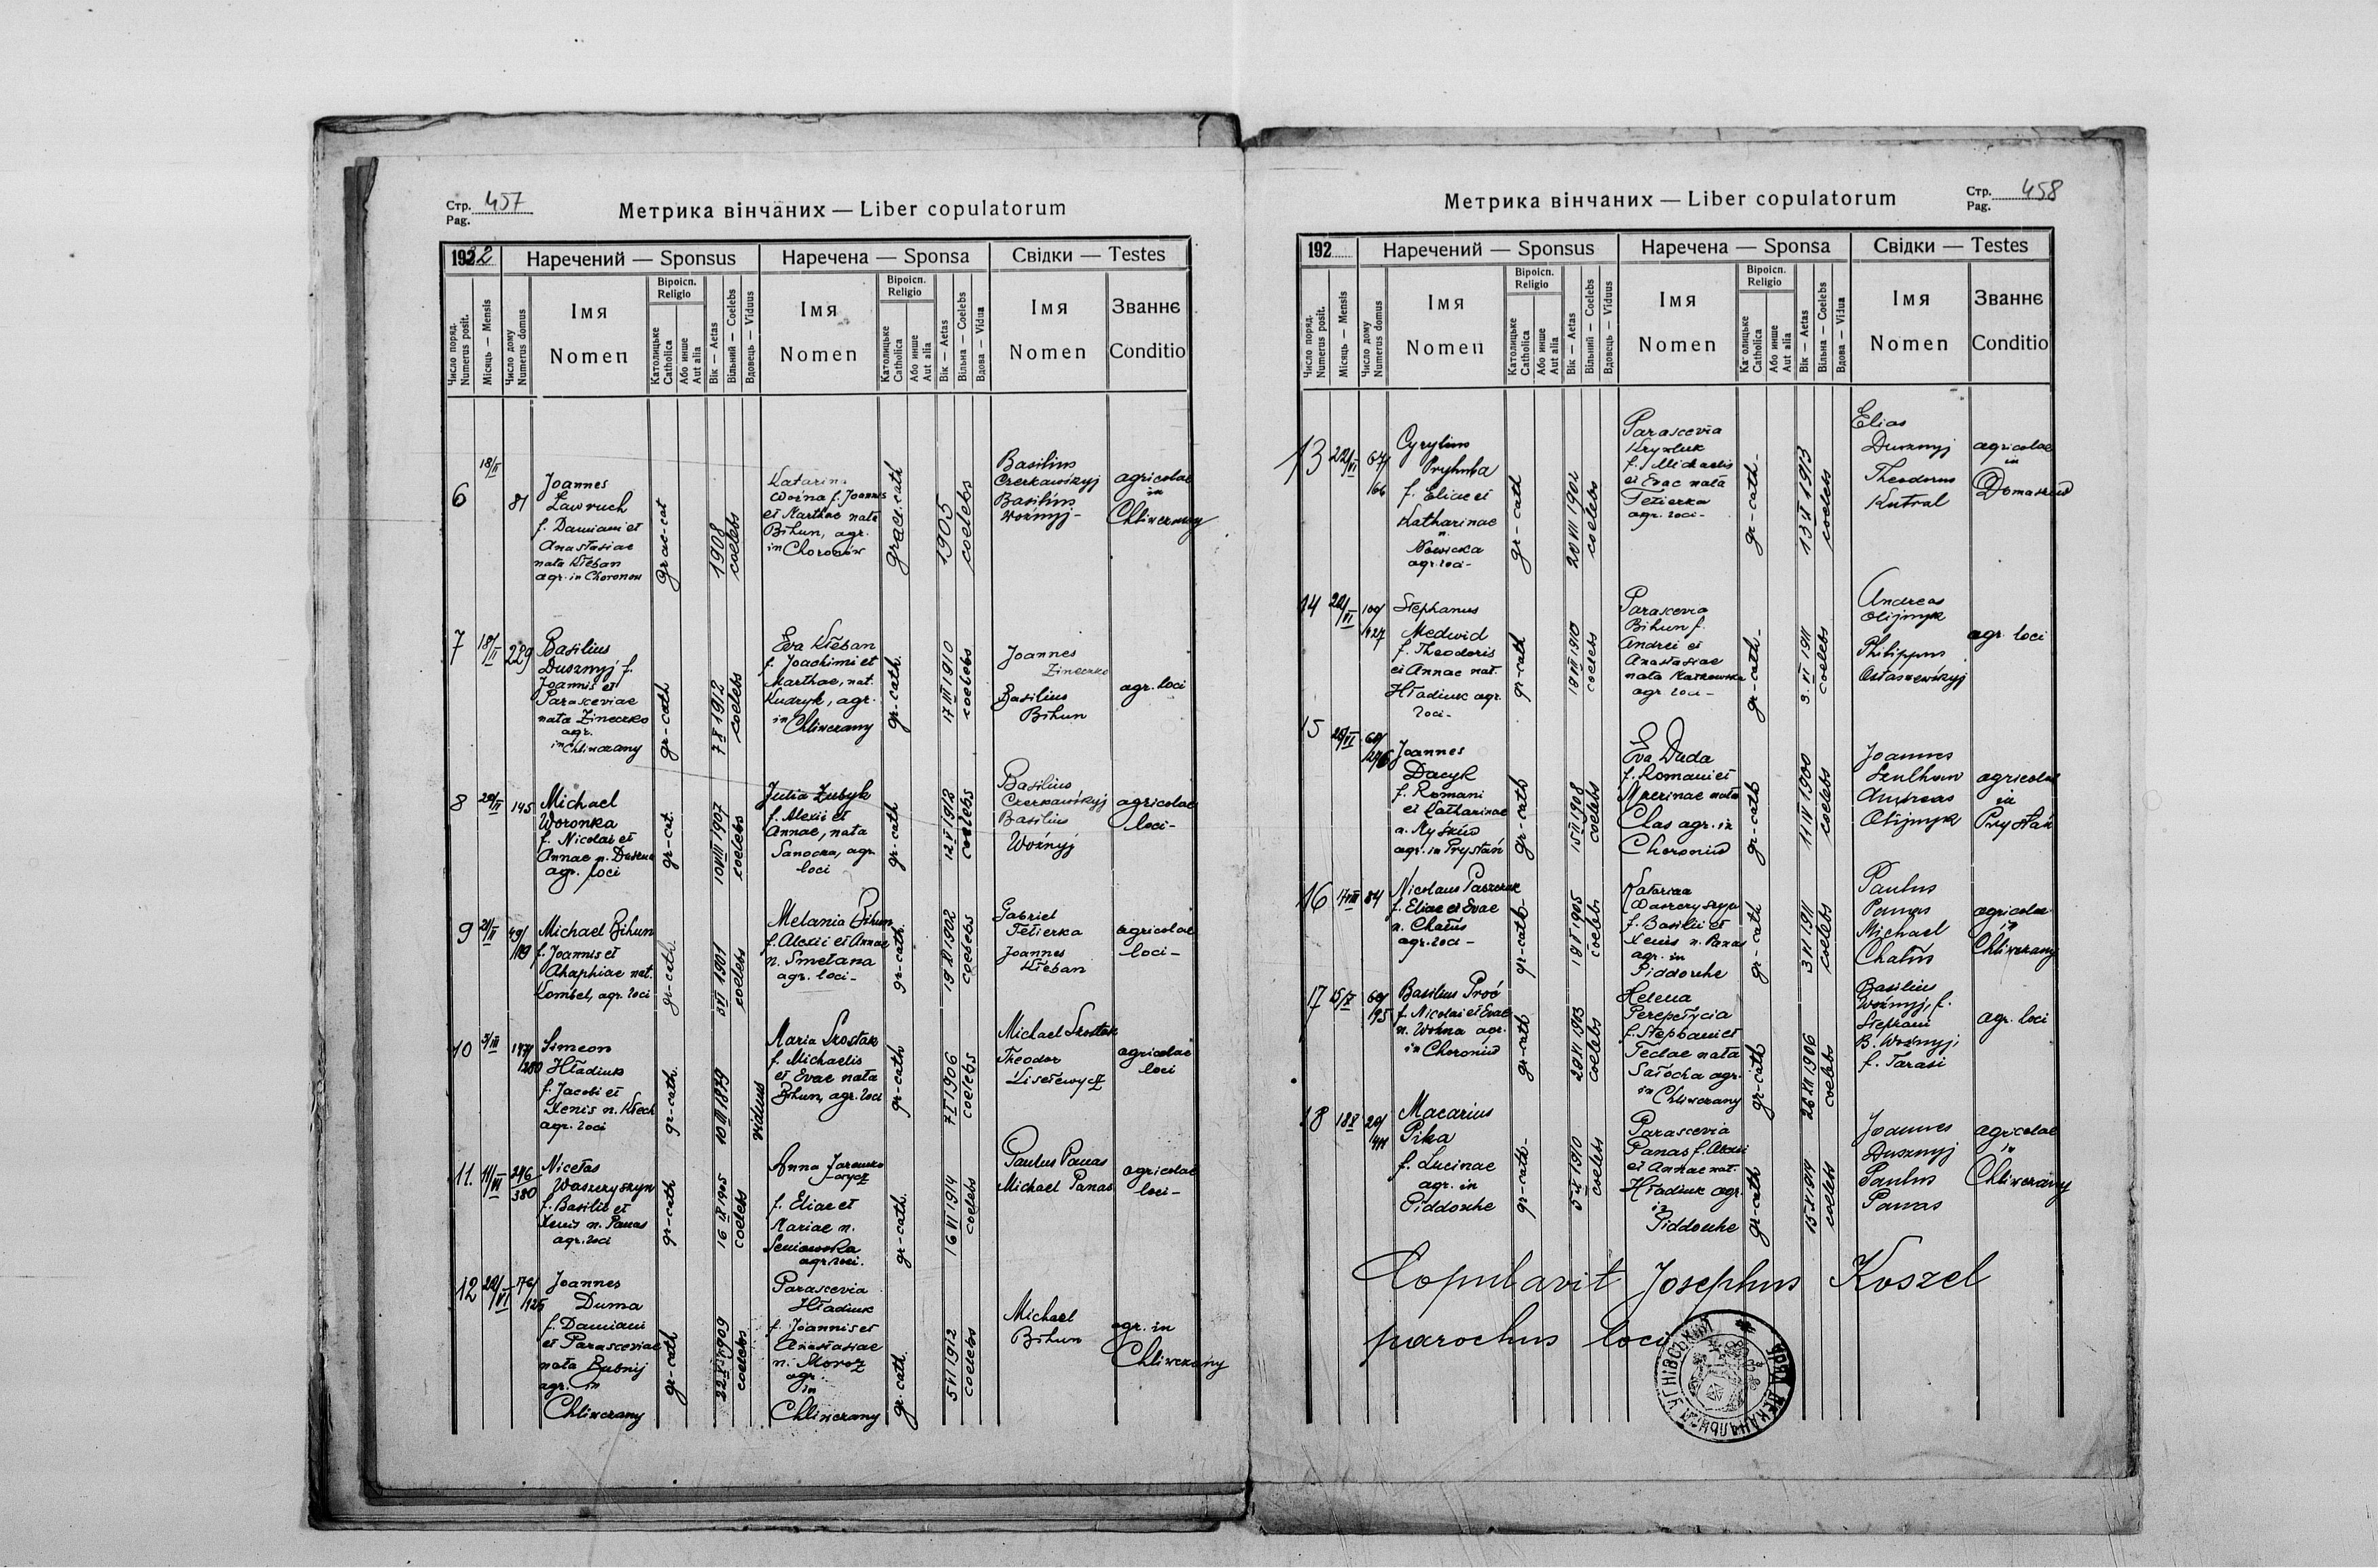 Стр. Pag. 457
Метрика вінчаних — Liber copulatorum
1932
Наречений — Sponsus
Наречена — Sponsa
Свідки — Testes
Число поряд. Numerus posit.
Місяць — Mensis
Число дому Numerus domus
Імя Nomen
Віроісп. Religio
Католицьке Catholica
Або инше Aut alia
Вік — Aetas
Вільний — Coelebs
Вдовець — Viduus
Імя Nomen
Віроісп. Religio
Католицьке Catholica
Або инше Aut alia
Вік — Aetas
Вільна — Coelebs
Вдова — Vidua
Імя Nomen
Званнє Conditio
6
18/II
81
Joannes
Ławruch
f. Damiani et
Anastasiae
nata Kłeban
agr. in Choronow
grae-cat
1908
coelebs
Katarina
Woźna f. Joannis
et Marthae nata
Bihun, agr.
in Choronów
graec. cath
1905
coelebs
Basilius
Czerkawśkyj
Basilius
Woźnyj -
agricolae
in
Chliwczany
7
18/II
229
Basilius
Dusznyj f.
Joannis et
Parasceviae
nata Zineczko
agr.
in Chliwczany
gr-cath
7 X 1912
coelebs
Eva Kłeban
f. Joachimi et
Marthae, nat.
Kudryk, agr.
in
Chliwczany
gr-cath.
17 III 1910
coelebs
Joannes
Zineczko
Basilius
Bihun
agr. loci
8
20/II
145
Michael
Woronka
f. Nicolai et
Annae n.
agr. loci
gr-cat.
10 VIII 1907
coelebs
Julia Zubyk
f. Alexii et
Annae, nata
Sanocka, agr.
loci
gr-cath
12 V 1913
coelebs
Basilius
Czerkawśkyj
Basilius
Woźnyj
agricolae
loci-
9
21/II
49/119
Michael Bihun
f. Joannis et
Ahaphiae nat.
Kombel, agr. loci
gr-cath.
1901
coelebs
Melania Bihun
f. Alexii et Annae
n. Smetana
agr. loci-
gr-cath.
19 XI 1902
coelebs
Gabriel
Tetierka
Joannes
Kłeban
agricolae
loci-
10
3/III
Simeon
Hładiuk
f. Jacobi et
Xenis n. Klech
agr. loci
gr-cath.
10 III 1879
viduus
Maria Szostak
f. Michaelis
et Evae nata
Bihun, agr. loci
gr-cath
7 I 1906
coelebs
Michael Szostak
Theodor
agricolae
loci
11.
11/VI
216/380
Nicetas
Waszczyszyn
f. Basilii et
Xenis n. Panas
agr. loci
gr-cath
16 IX 1905
coelebs
Anna
f. Eliae et
Mariae n.
Seniowska
agr. loci.
gr-cath.
16 VI 1914
coelebs
Paulus Panas
Michael Panas
agricolae
loci-
12
22/VI
176/125
Joannes
Duma
f. Damiani
et Parasceviae
nata Babnij
agr. in
Chliwczany
gr-cath
1909
coelebs
Parascevia
Hładiuk
f. Joannis et
Anastasiae
n. Moroz
agr.
in
Chliwczany
gr-cath.
5 VI 1912
coelebs
Michael
Bihun
agr. in
Chliwczany
Метрика вінчаних — Liber copulatorum
Стр. Pag. 458
192
Наречений — Sponsus
Наречена — Sponsa
Свідки — Testes
Число поряд. Numerus posit.
Місяць — Mensis
Число дому Numerus domus
Імя Nomen
Віроісп. Religio
Католицьке Catholica
Або инше Aut alia
Вік — Aetas
Вільний — Coelebs
Вдовець — Viduus
Імя Nomen
Віроісп. Religio
Ка олицьке Catholica
Або инше Aut alia
Вік — Aetas
Вільна — Coelebs
Вдова — Vidua
Імя Nomen
Званнє Conditio
13
22/VI
67/66
Cyrylius
Pryhuba
f. Eliae et
Katharinae
n.
Nowicka
agr. loci-
gr-cath
20 VIII 1902
coelebs
Parascevia
f. Michaelis
et Evae nata
Tetierka
agr. loci-
gr-cath-
1913
coelebs
Elias
Dusznyj
Theodorus
Kutral
agricolae
in
Domaszów
14
22/VI
Stephanus
Medwid
f. Theodoris
et Annae nat.
Hładiuk agr.
loci-
gr-cath
1910
coelebs
Parascevia
Bihun f.
Andrei et
Anastasiae
nata
agr. loci-
gr-cath-
3. VI 1911
coelebs
Andreas
Olijnyk
Philippus
Ostaszewśkyj
agr. loci
15
Joannes
Dacyk
f. Romani
et Katharinae
agr. in Prystań
gr-cath
15 II 1908
coelebs
Eva Duda
f. Romani et
nata
Clas agr. in
Choroniw
gr-cath
11 IV 1900
coelebs
Joannes
Szulhan
Andreas
Olijnyk
agricolae
in
Prystań
16
84
Nicolaus Paszczuk
f. Eliae et Evae
n. Chatus
agr. loci-
gr-cath-
18 V 1905
coelebs
Katarina
Waszczyszyn
f. Basilii et
Xenis n. Panas
agr. in
Piddouhe
gr-cath
3 VI 1911
coelebs
Paulus
Panas
Michael
Chatus
agricolae
in
Chliwczany
17
15/X
60/95
Basilius Proć
f. Nicolai et Evae
n. Woźna agr.
in Choroniw
gr-cath
1903
coelebs
Helena
Perepełycia
f. Stephani et
Teclae nata
Sałocha agr.
in
Chliwczany
gr-cath
26 XII 1906
coelebs
Basilius
Woźnyj, f.
Stephani
B. Woźnyj,
f. Tarasi
agr. loci
18
18 X
Macarius
Pika
f. Lucinae
agr. in
Piddouhe
gr-cath-
5 IX 1910
coelebs
Parascevia
Panas f. Alexii
et Annae nat.
Hładiuk agr.
in
Piddouhe
gr-cath
coelebs
Joannes
Dusznyj
Paulus
Panas
agricolae
in
Chliwczany
Copulavit Josephus Koszel
parochus loci